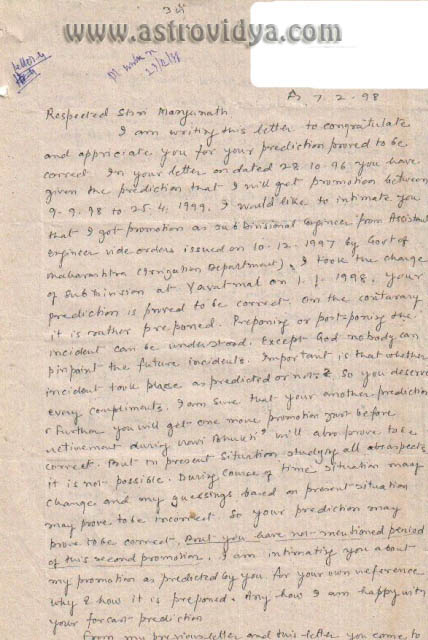 www.astrovidya.com
ॐ
Respected Shri Manjunath
7-2-98
I am writing this letter to congratulate
and appriciate you for your prediction proved to be
correct. In your letter dated 28-10-96 you have
given the prediction that I will get promotion between
9-9-98 to 25-4-1999. I would like to intimate you
that I got promotion as Subdivisional Engineer from Assistant
Engineer vide orders issued on 10-12-1997 by Govt of
Maharashtra (Irrigation Department). I took the charge
of Subdivision at Yavatmal on 1-1-1998. Your
prediction is proved to be correct. On the contarary
it is rather preponed. Preponing or postponing the
incident can be understood. Except God nobody can
pinpoint the future incidents. Important is that whether
incident took place as predicted or not? So you deserve
every compliments. I am sure that your another prediction
"Further you will get one more promotion just before
retirement during Ravi Bhukti" will also prove to be
correct. But in present Situation studying all aspects
it is not possible. During Cource of time situation may
change and my guessings based on present situation
may prove to be incorrect. So your prediction may
prove to be correct. But you have not mentioned period
of this second promotion. I am intimating you about
my promotion as predicted by you for your own reference
why & how it is preponed. Any how I am happy with
your forcast prediction
From my previous letter and this letter you come to